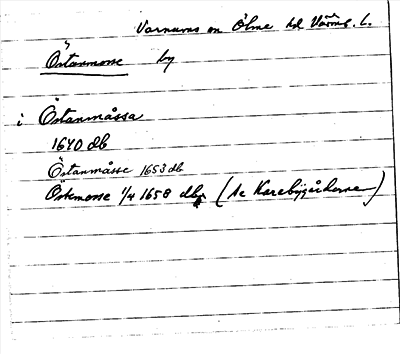 Varnums sn Ölme hd Värml. L.
Östanmosse by
i Östanmåssa
1640 db
Östanmåsse 1653 db
Östmosse 1/4 1658 db (Se Karebygårdarne)